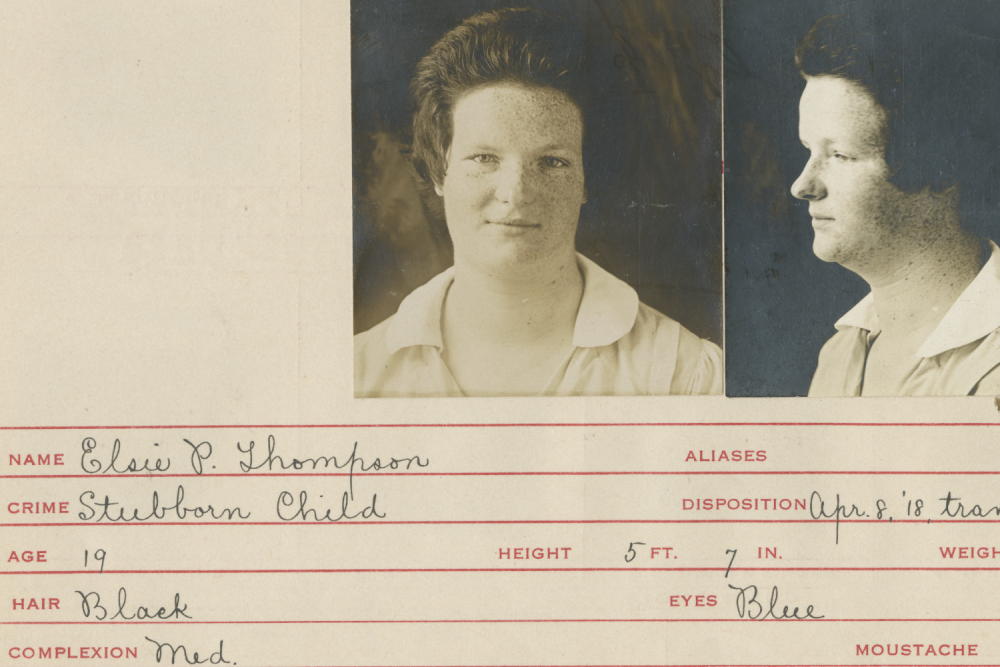 NAME Elsie P. Thompson ALIASES
CRIME Stubborn Child DISPOSITION Apr. 8, '18, tran
AGE 19 HEIGHT 5 FT. 7 IN. WEIGH
HAIR Black EYES Blue
COMPLEXION Med. MOUSTACHE